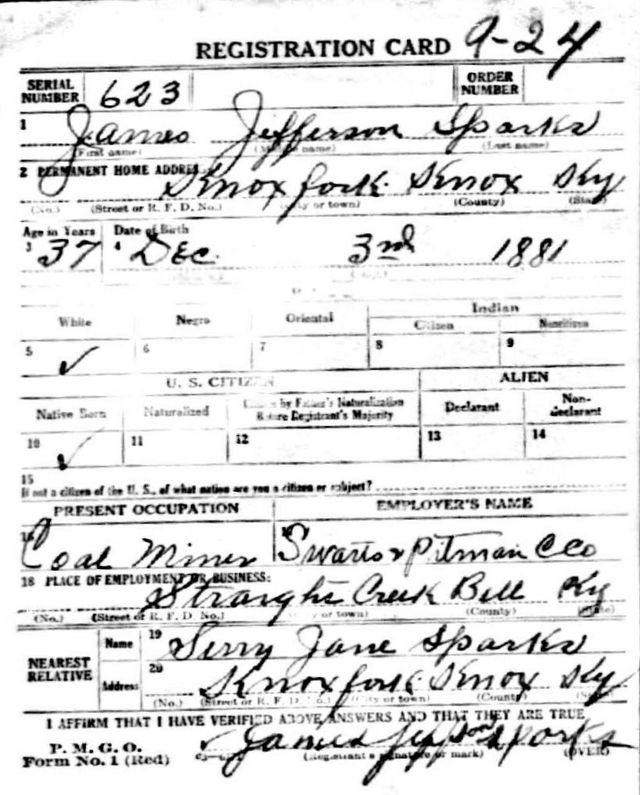 REGISTRATION CARD 9-24
SERIAL NUMBER 623 ORDER NUMBER
1 James Jefferson Sparks
(First name) (Middle name) (Last name)
2 PERMANENT HOME ADDRESS
Knox fork Knox Ky
(No.) (Street or R. F. D. No.) (City or town) (County) (State)
Age in Years Date of Birth
3 37 4 Dec. 3rd 1881
Indian
White Negro Oriental Citizen Noncitizen
5 ✓ 6 7 8 9
U. S. CITIZEN ALIEN
Native Born Naturalized Citizen by Father's Naturalization Before Registrant's Majority Declarant Non-declarant
10 ✓ 11 12 13 14
15
If not a citizen of the U. S., of what nation are you a citizen or subject?
PRESENT OCCUPATION EMPLOYER'S NAME
16 Coal Miner Pitman C Co
18 PLACE OF EMPLOYMENT OR BUSINESS:
Straight Creek Bell Ky
(No.) (Street or R. F. D. No.) (City or town) (County) (State)
NEAREST RELATIVE Name 19 Jane Sparks
Address 20 Knox fork Knox Ky
(No.) (Street or R. F. D. No.) (City or town) (County)
I AFFIRM THAT I HAVE VERIFIED ABOVE ANSWERS AND THAT THEY ARE TRUE
P. M. G. O.
Form No. 1 (Red) James Sparks
(Registrant's signature or mark) (OVER)